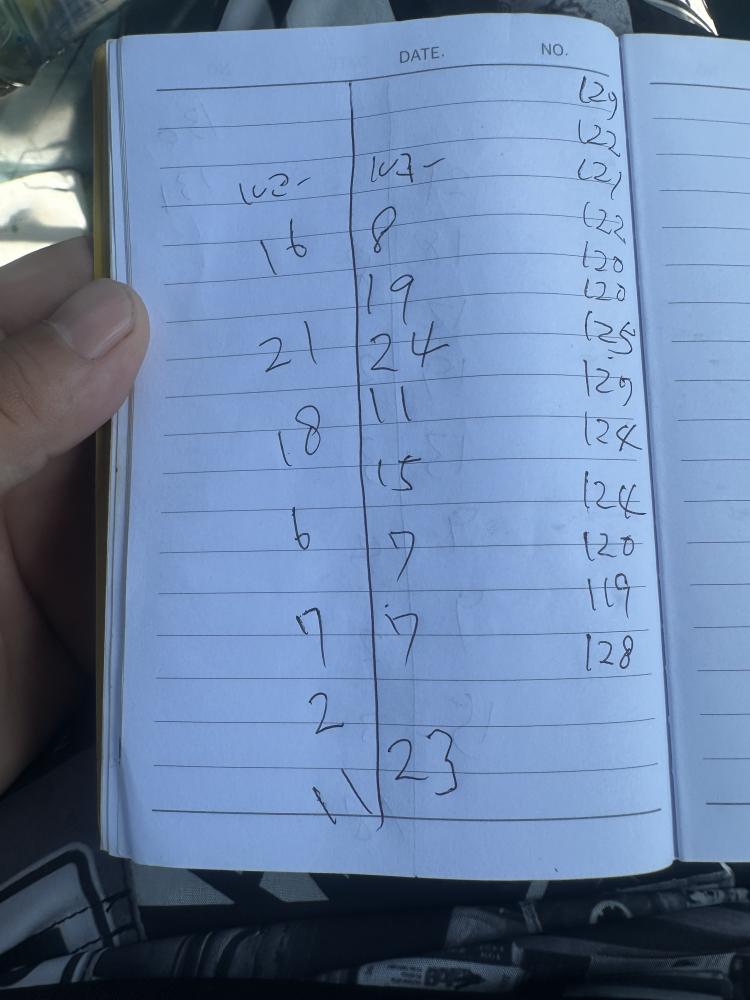 DATE. NO.
129
122
102- 107- 121
16 8 122
120
19 120
21 24 125
129
11
18 124
15
6 124
7 120
7 7 119
128
2
23
11